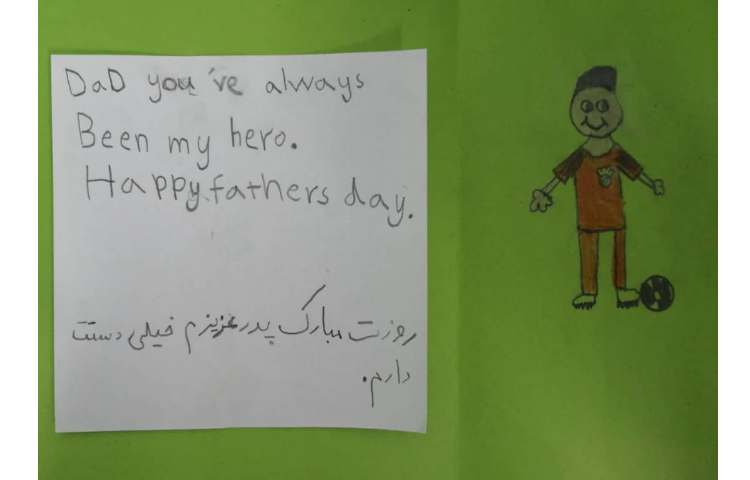 DaD you've always
Been my hero.
Happy fathers day.
روزت مبارک پدر عزیزم خیلی دستت
دارم.